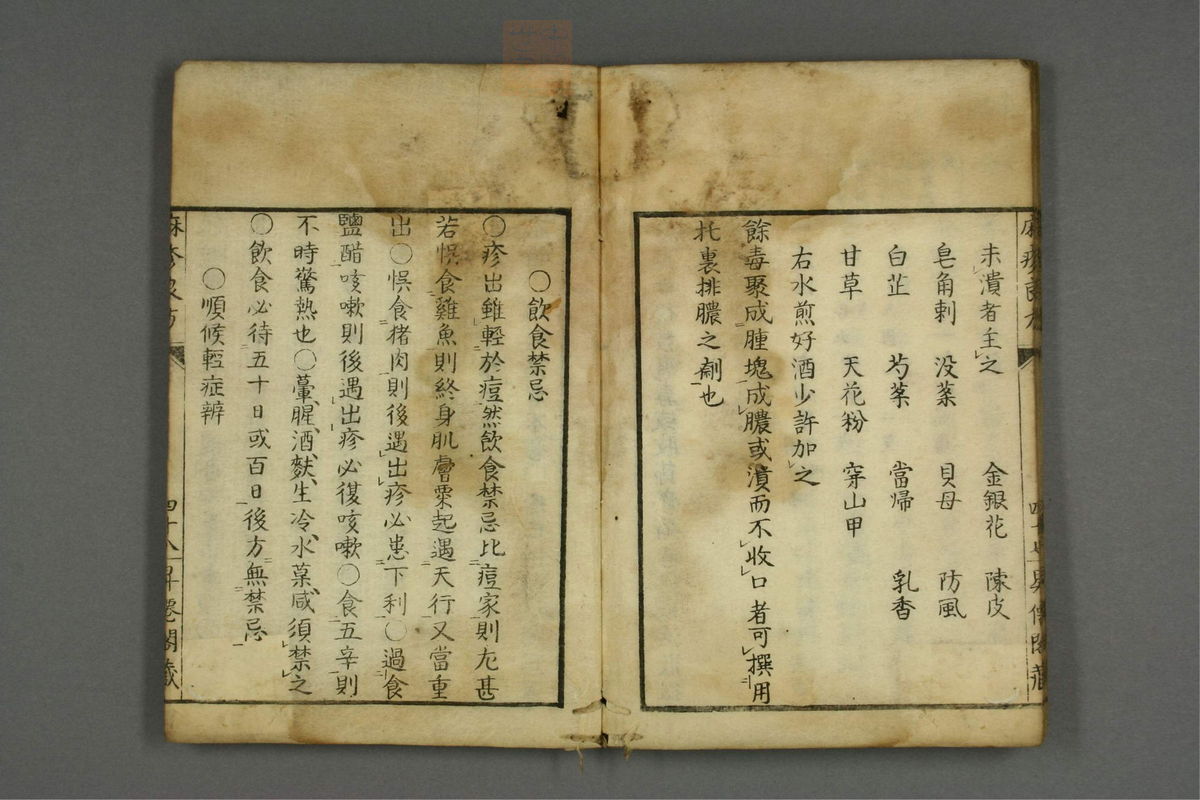 未潰者主之 金銀花 陳皮
皂角刺 没薬 貝母 防風
白芷 芍薬 當帰 乳香
甘草 天花粉 穿山甲
右水煎好酒少許加之
餘毒聚成腫塊成膿或潰而不收口者可撰用
托裏排膿之劑也
○飲食禁忌
○疹出雖輕於痘然飲食禁忌比痘家則尤甚
若悞食雞魚則終身肌膚粟起遇天行又當重
出○悞食猪肉則後遇出疹必患下利○過食
鹽醋咳嗽則後遇出疹必復咳嗽○食五辛則
不時驚熱也○葷腥酒麩生冷水菓咸須禁之
○飲食必待五十日或百日後方無禁忌
○順候輕症辨
四十八